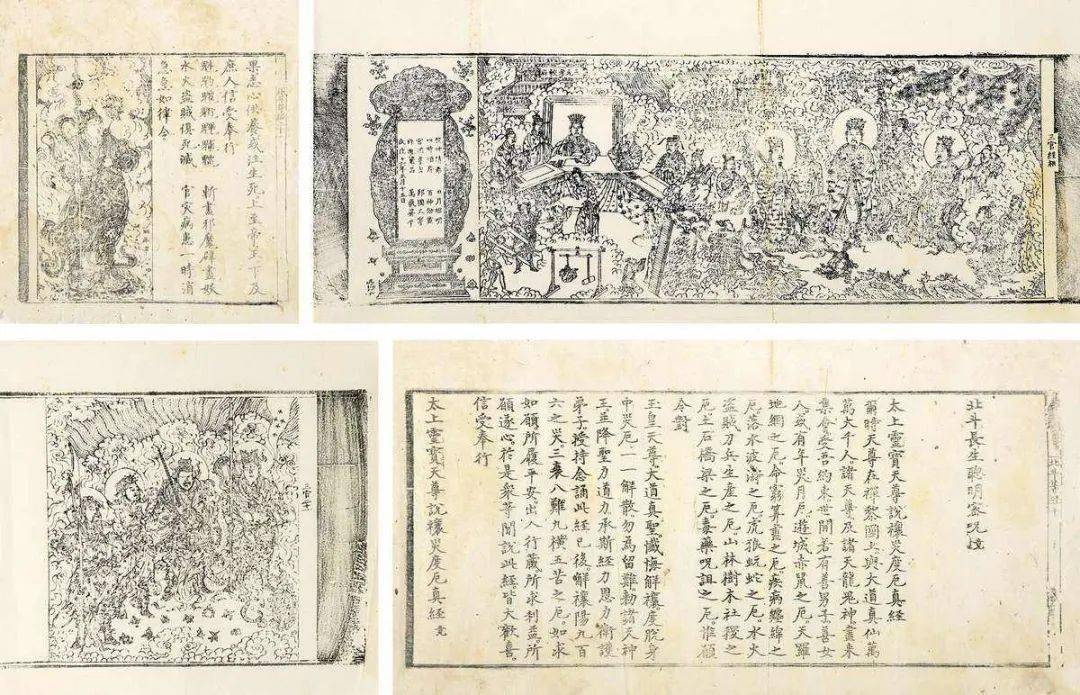 果志心供養或注生死上至帝王下及
庶人信受奉行
斬盡邪魔
水火盜賊俱死滅 官灾病患一時消
急急如律令
三官經
三官
北斗長生聰明密呪
太上靈寶天尊說禳灾度厄真經
爾時天尊在禪黎國土與大道真仙萬
萬大千人諸天尊及諸天龍鬼神盡來
集會受吾約束世間若有善男子善女
人或有年灾月厄遊城赤鼠之厄天羅
地網之厄命窮筭盡之厄疾病纏綿之
厄落水波濤之厄虎狼蚖蛇之厄水火
盜賊刀兵生產之厄山林樹木社稷之
厄土石橋梁之厄毒藥呪詛之厄惟願
今對
玉皇天尊大道真聖懺悔解禳度脫身
中灾厄一一解散勿為留難勅諸天神
王並降聖力道力承斯經力思力衛護
弟子授持念誦此經已後解禳陽九百
六之灾三衰八難九橫五苦之厄如求
如願所履平安出入行藏所求利益所
願遂心於是衆等聞說此經皆大歡喜
信受奉行
太上靈寶天尊說禳灾度厄真經 竟